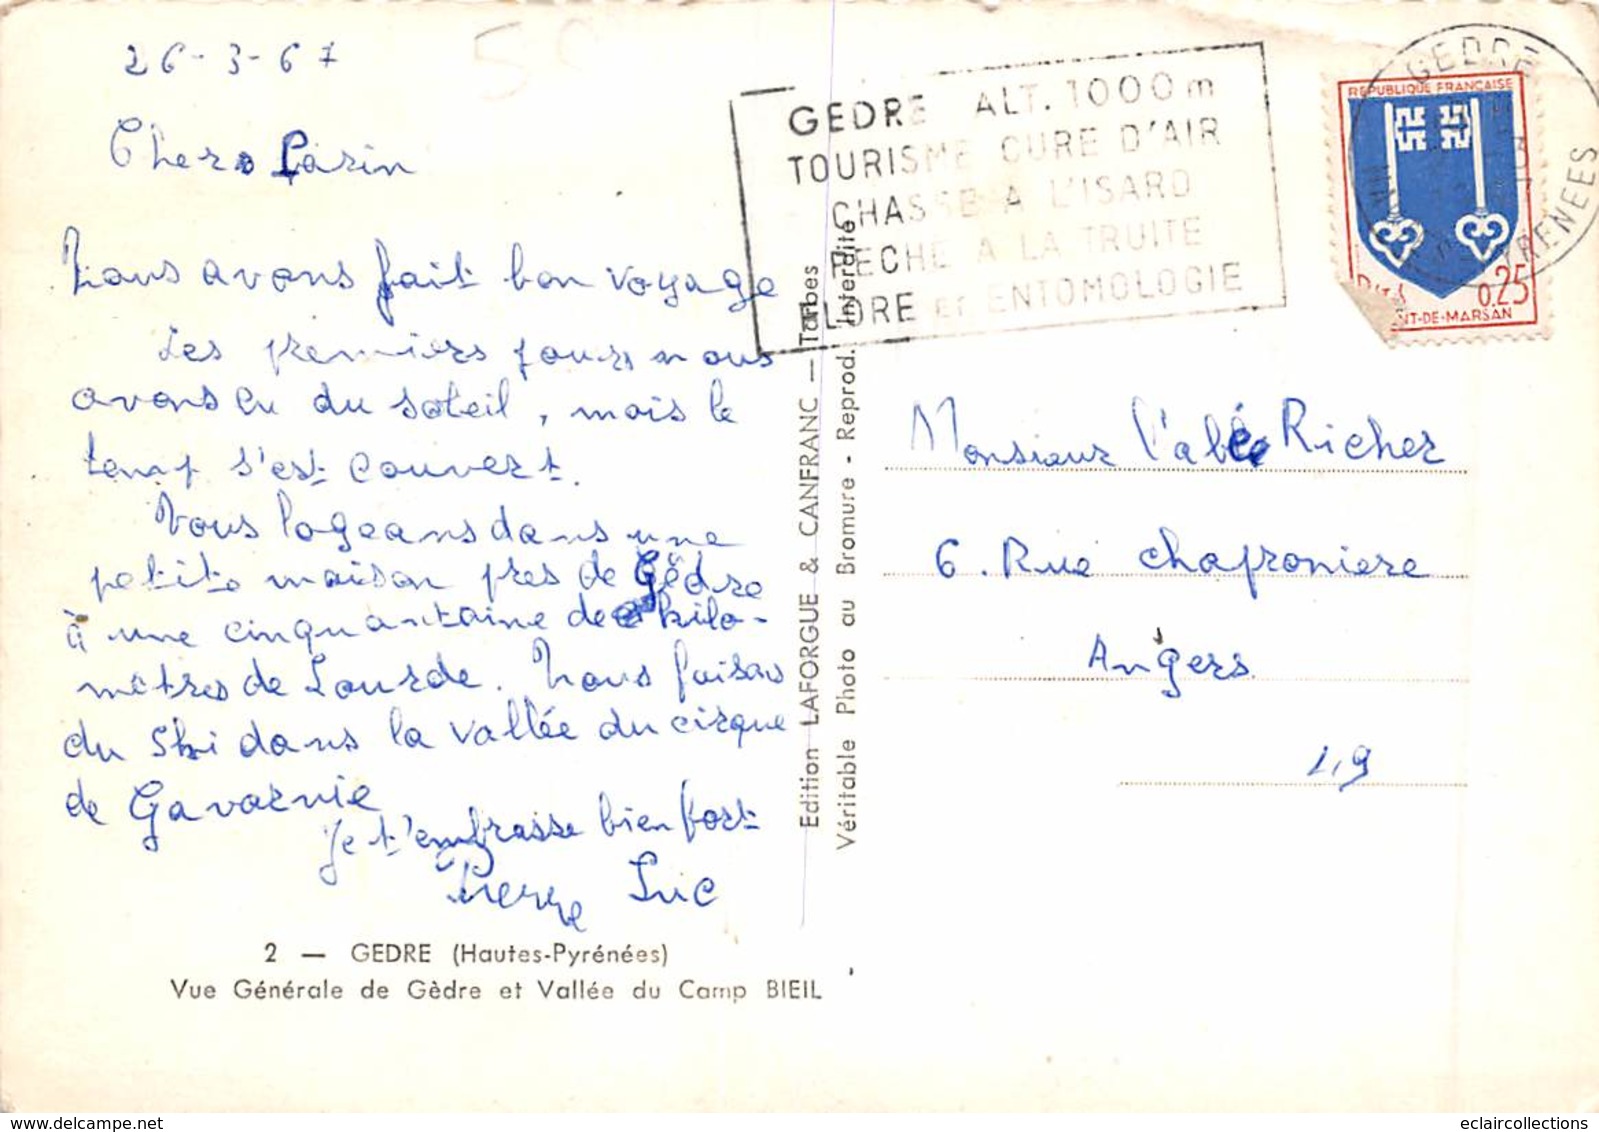 26-3-67
Cher Parin
Nous avons fait bon voyage
Les premiers jours nous
avons eu du soleil, mais le
temp s'est couvert.
Nous logeons dans une
petite maison pres de Gèdre
à une cinquantaine de kilo-
mètres de Lourde. Nous faisons
du ski dans la vallée du cirque
de Gavarnie
Je t'embrasse bien fort
Pierre Luc
2 — GEDRE (Hautes-Pyrénées)
Vue Générale de Gèdre et Vallée du Camp BIEIL
Edition LAFORGUE & CANFRANC — Tarbes
Véritable Photo au Bromure - Reprod. Interdite
GEDRE ALT. 1000 m
TOURISME CURE D'AIR
CHASSE A L'ISARD
PECHE A LA TRUITE
FLORE et ENTOMOLOGIE
GEDRE
PYRENEES
REPUBLIQUE FRANÇAISE
0,25
NT-DE-MARSAN
Monsieur l'abbé Richer
6. Rue chaperonniere
Angers
49
eclaircollections